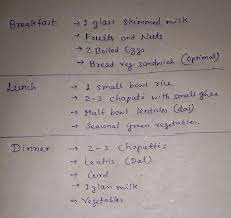 Breakfast → 1 glass skimmed milk
→ Fruits and Nuts
→ 2 Boiled Eggs
→ Bread veg sandwich (optional)
Lunch → 1 small bowl rice
→ 2-3 chapati with small ghee
→ Half bowl lenticles (dal)
→ Seasonal green vegetables.
Dinner → 2-3 Chapattis
→ Lentils (Dal)
→ Curd
→ 1 glass milk
→ Vegetables